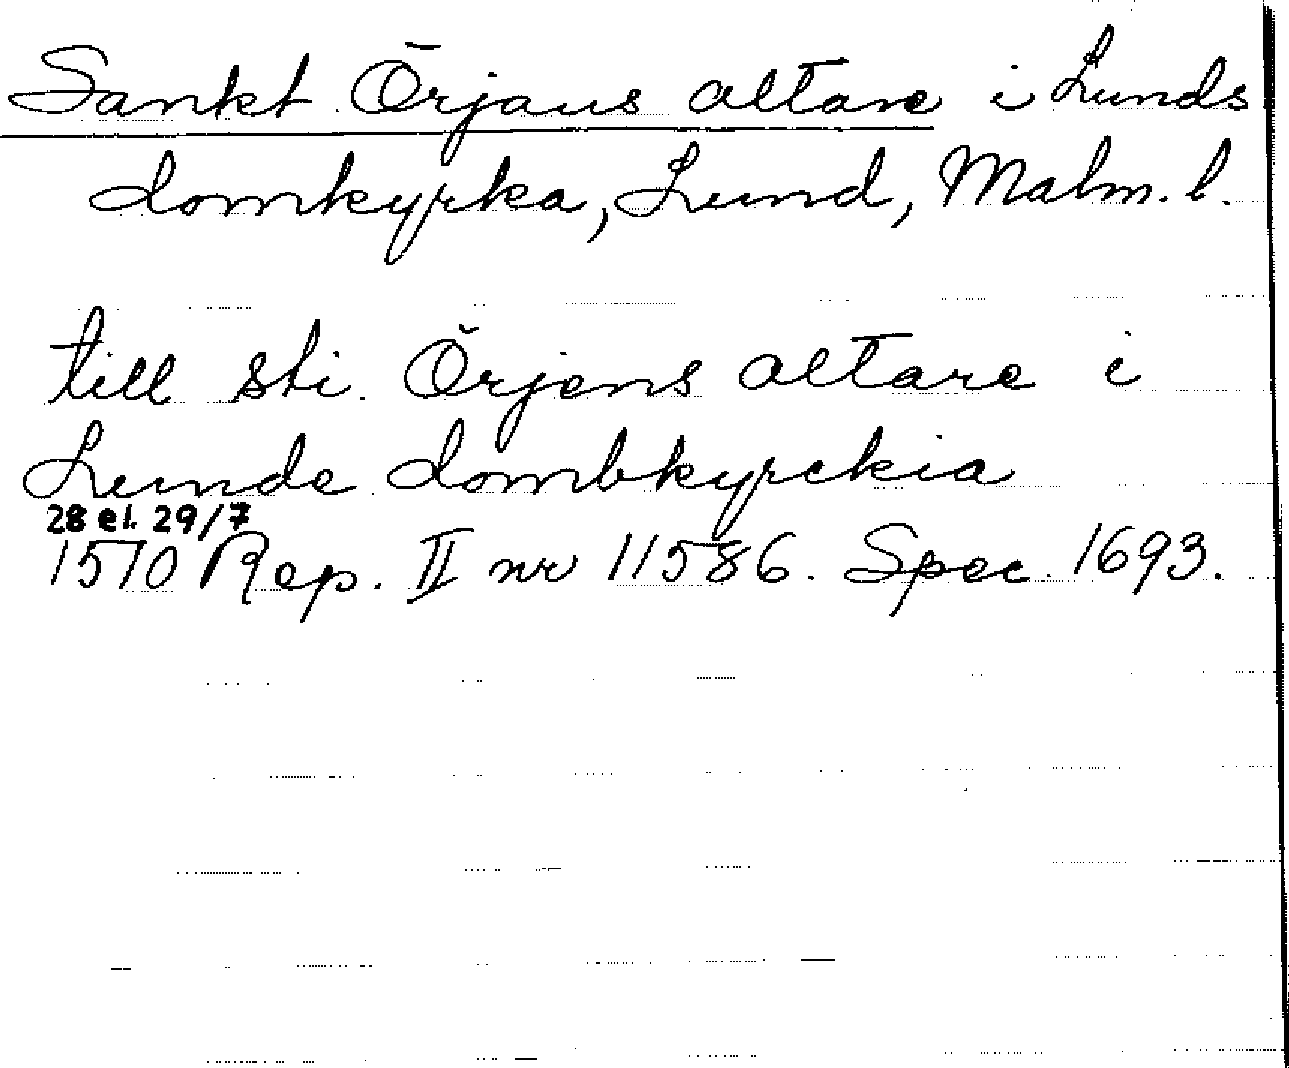 Sankt Örjans altare i Lunds
domkyrka, Lund, Malm. l.
till sti. Örjens altare i
Lunde dombkyrckia
28 el. 29/7
1570 Rep. II nr 11586. Spec. 1693.